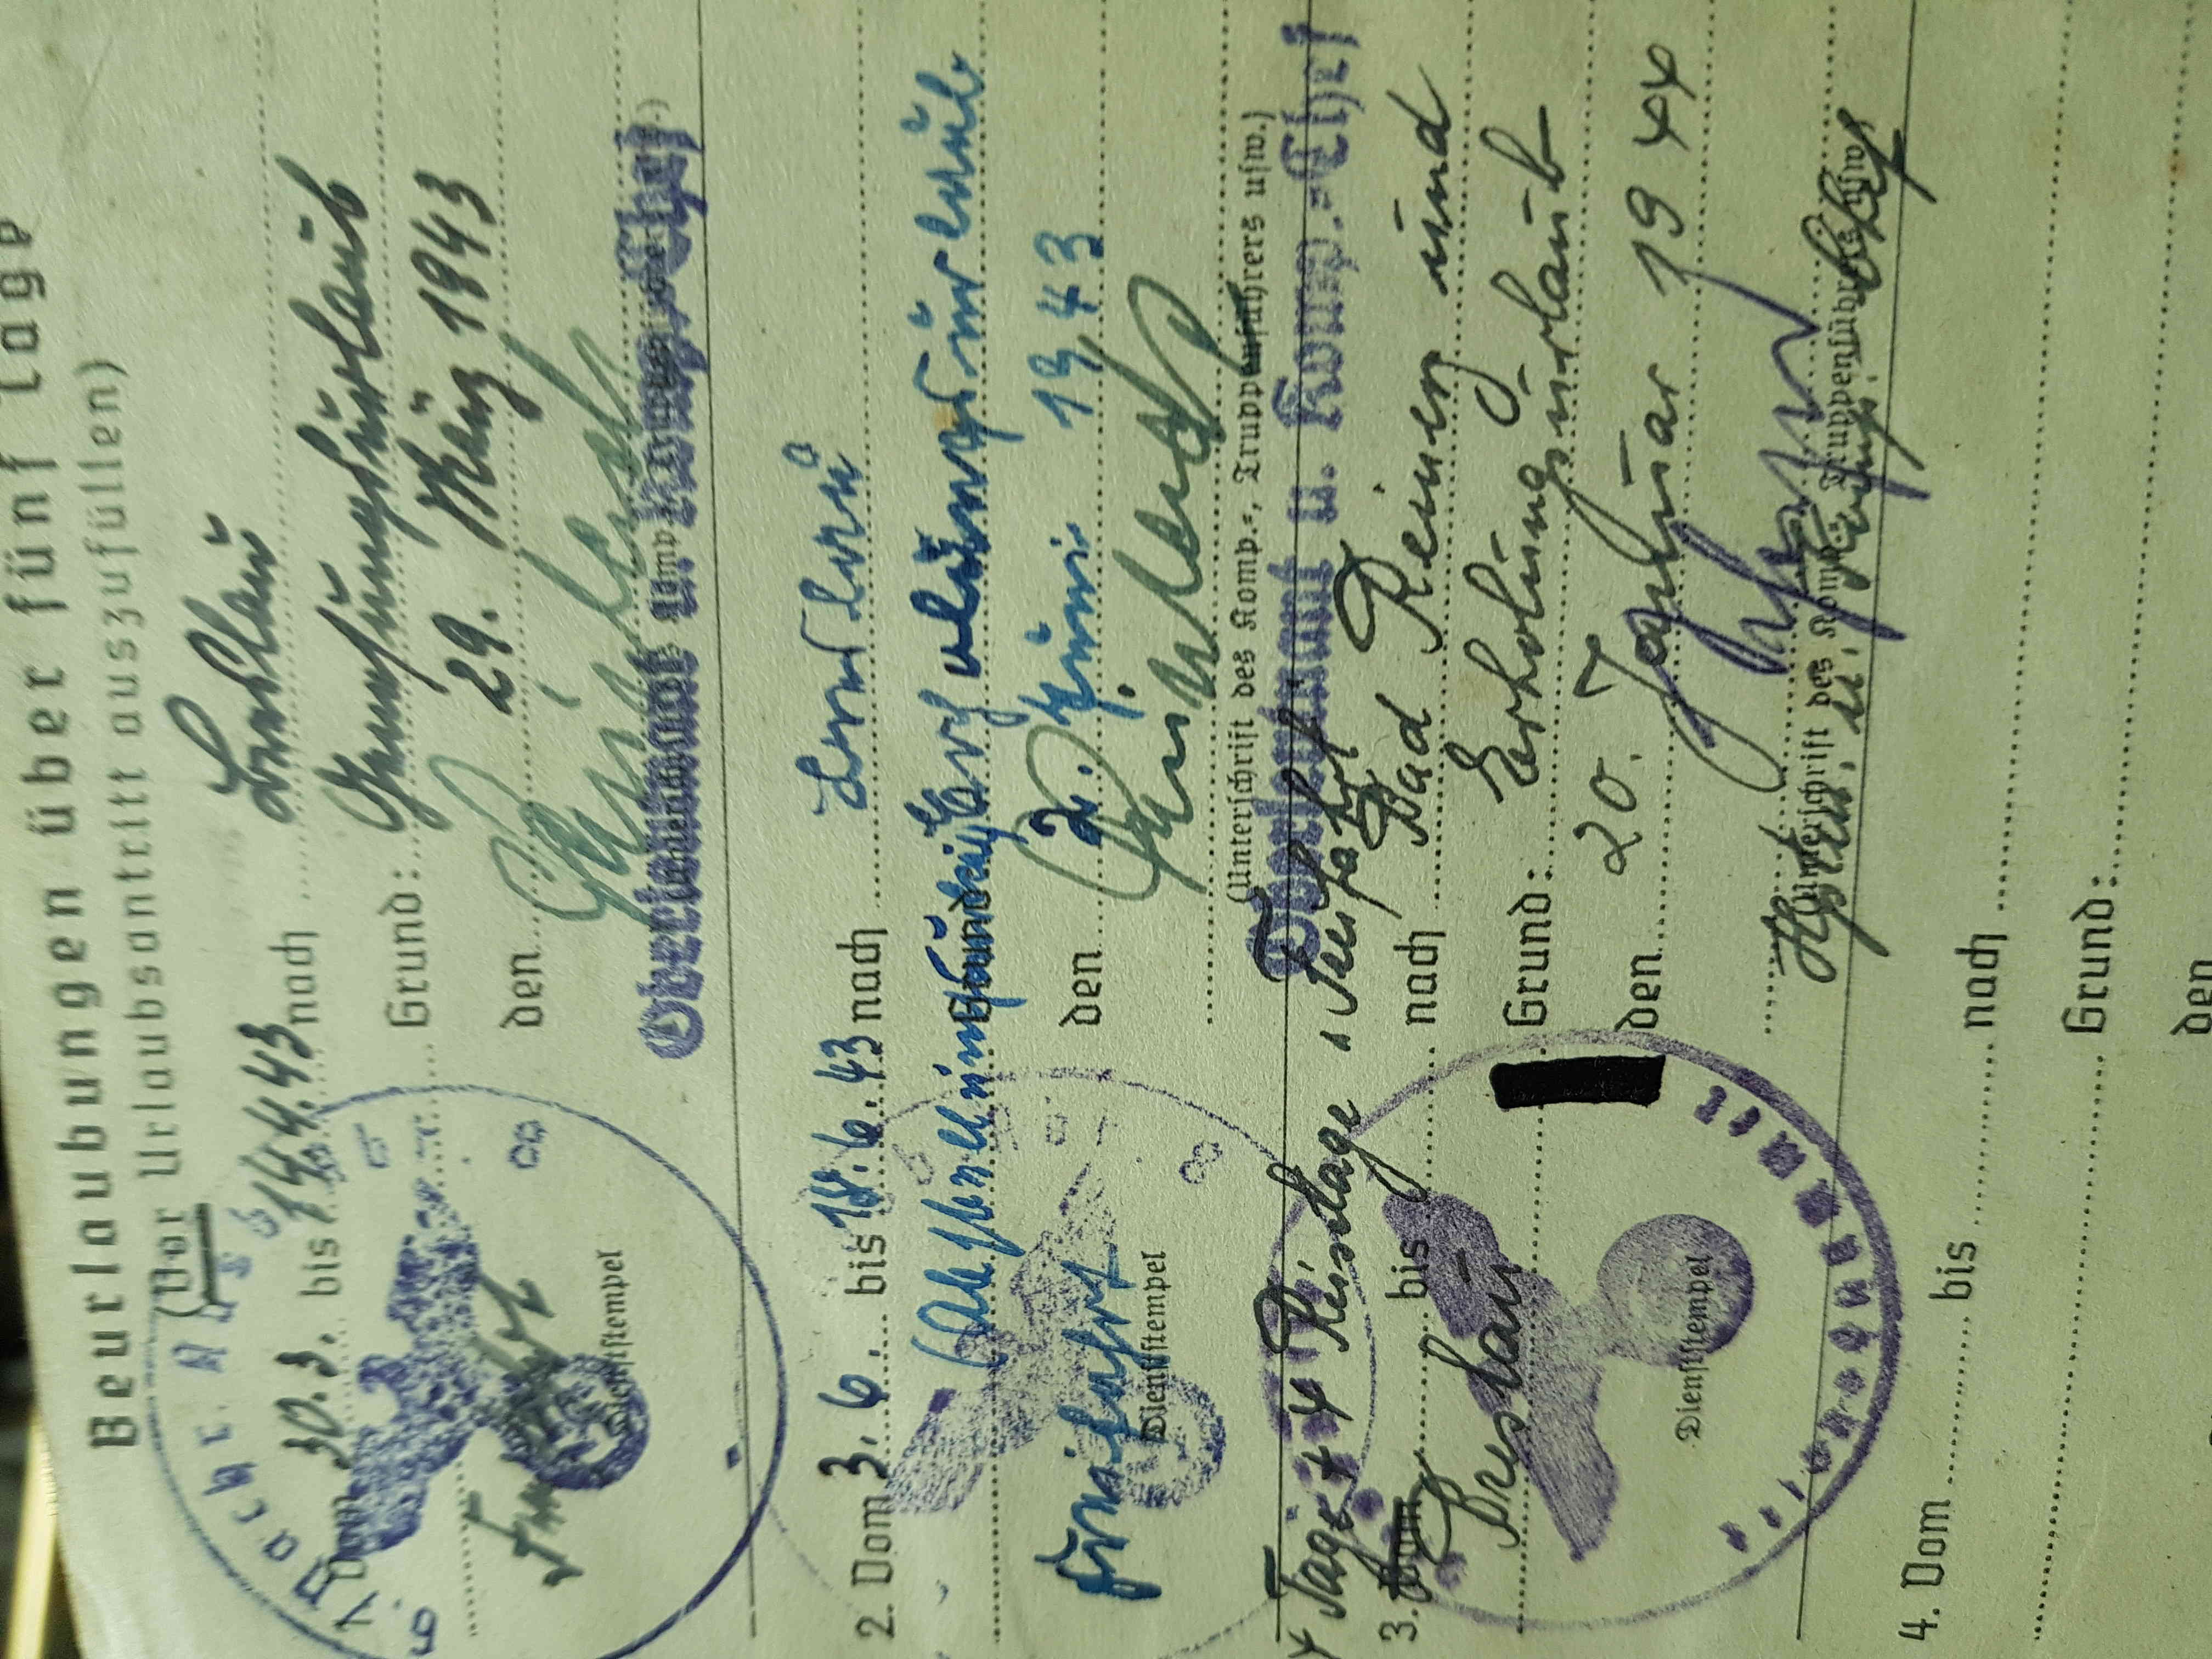 Beurlaubungen über fünf Tage
(Vor Urlaubsantritt auszufüllen)
6./Nachr. Ausb. Abt. 8
1. Vom 30.3. bis 14.4.43 nach Breslau
Grund: Genesungsurlaub
den 29. März 1943
Dienststempel
(Unterschrift des Komp.-, Truppenführers usw.)
Oberleutnant u. Komp.-Chef
2. Vom 3.6. bis 18.6.43 nach Breslau
Grund: Erholungsurlaub
Freifahrt
den 2. Juni 1943
Dienststempel
8
(Unterschrift des Komp.-, Truppenführers usw.)
Oberleutnant u. Komp.-Chef
4 Tage + 4 Reisetage Freifahrt
3. Vom bis nach Bad Reinerz und
Breslau
Grund: Erholungsurlaub
den 20. Januar 1944
Dienststempel
(Unterschrift des Komp.-, Truppenführers usw.)
Hptm. u. Komp.-Chef
4. Vom bis nach
Grund:
den